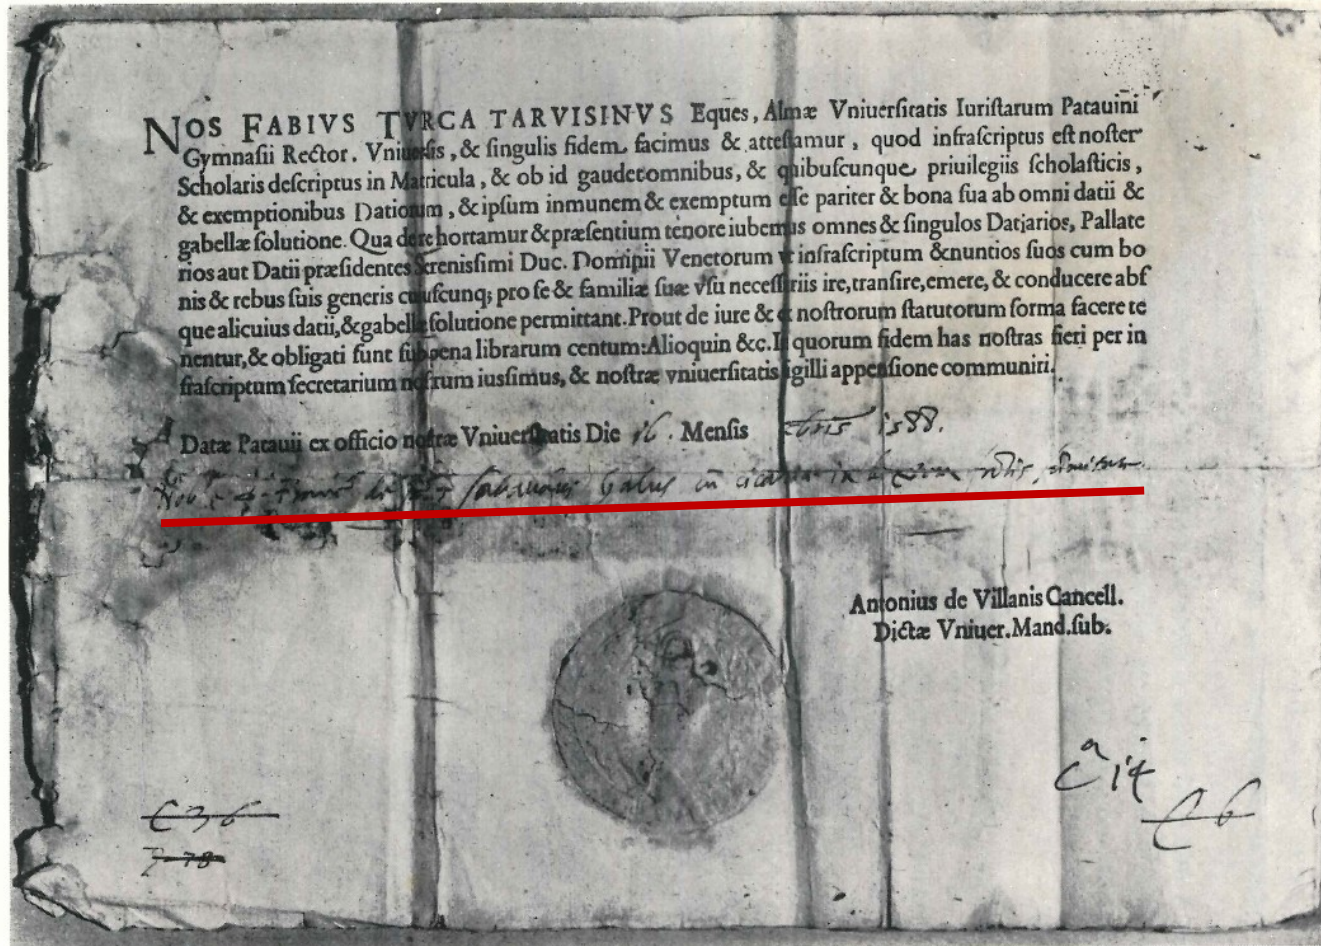 NOS FABIVS TVRCA TARVISINVS Eques, Almæ Vniuerſitatis Iuriſtarum Patauini
Gymnaſii Rector. Vniuerſis, & ſingulis fidem facimus & atteſtamur, quod infraſcriptus eſt noſter
Scholaris deſcriptus in Matricula, & ob id gaudet omnibus, & quibuſcunque priuilegiis ſcholaſticis,
& exemptionibus Datiorum, & ipſum inmunem & exemptum eſſe pariter & bona ſua ab omni datii &
gabellæ ſolutione. Qua de re hortamur & præſentium tenore iubemus omnes & ſingulos Datiarios, Pallate
rios aut Datii præſidentes Sereniſſimi Duc. Dominii Venetorum vt infraſcriptum & nuntios ſuos cum bo
nis & rebus ſuis generis cuiuſcunq; pro ſe & familiæ ſuæ vſu neceſſariis ire, tranſire, emere, & conducere abſ
que alicuius datii, & gabellæ ſolutione permittant. Prout de iure & ex noſtrorum ſtatutorum forma facere te
nentur, & obligati ſunt ſub pena librarum centum: Alioquin &c. In quorum fidem has noſtras fieri per in
fraſcriptum ſecretarium noſtrum iuſſimus, & noſtræ vniuerſitatis ſigilli appenſione communiri.
Datæ Patauii ex officio noſtræ Vniuerſitatis Die 16. Menſis 1588.
Antonius de Villanis Cancell.
Dictæ Vniuer. Mand. ſub.
C 36
C 6